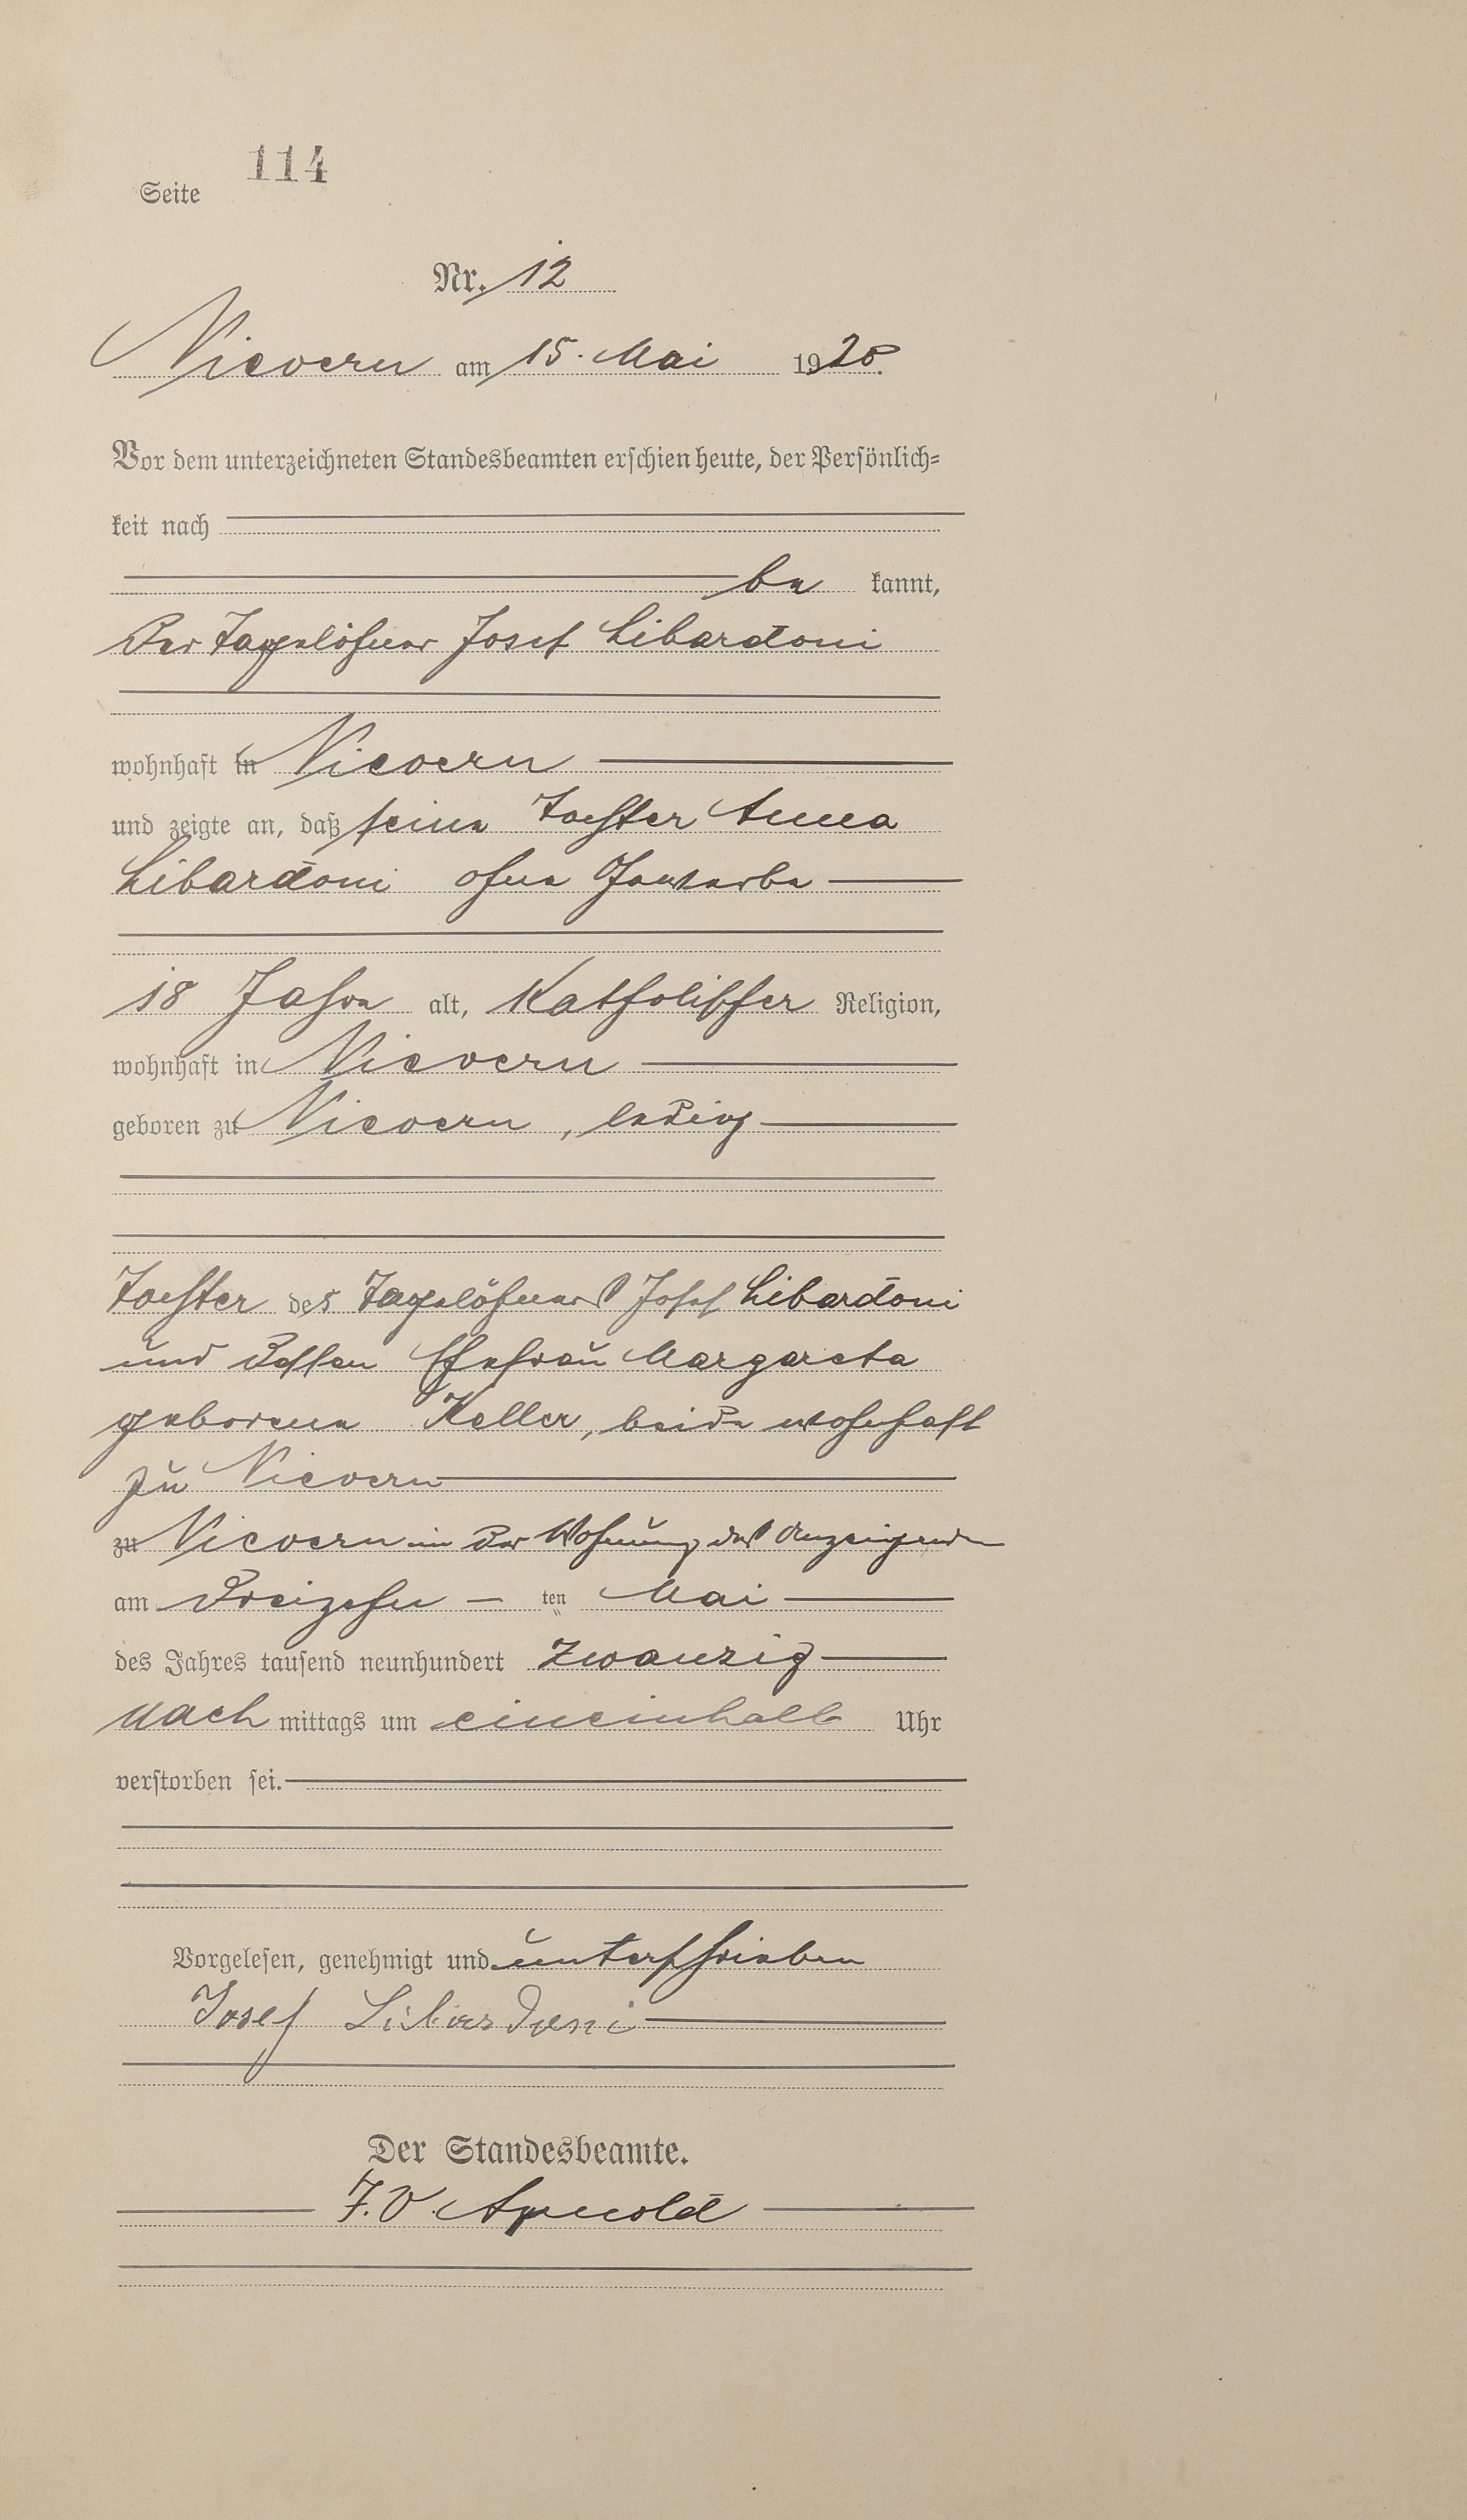 Seite 114
Nr. 12
Nievern am 15. Mai 1920.
Vor dem unterzeichneten Standesbeamten erschien heute, der Persönlich=
keit nach
be kannt,
Der Tagelöhner Josef Libardoni
wohnhaft in Nievern
und zeigte an, daß seine Tochter Anna
Libardoni ohne Gewerbe
18 Jahre alt, Katholischer Religion,
wohnhaft in Nievern
geboren zu Nievern, ledig
Tochter des Tagelöhners Josef Libardoni
und dessen Ehefrau Margareta
geborene Keller, beide wohnhaft
zu Nievern
zu Nievern in der Wohnung des Anzeigenden
am Dreizehn ten Mai
des Jahres tausend neunhundert zwanzig
nach mittags um eineinhalb Uhr
verstorben sei.
Vorgelesen, genehmigt und unterschrieben
Josef Libardoni
Der Standesbeamte.
J.V. Arnold